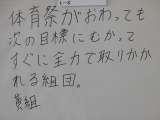 体育祭がおわっても
次の目標にむかって
すぐに全力で取りかか
れる組団。
黄組